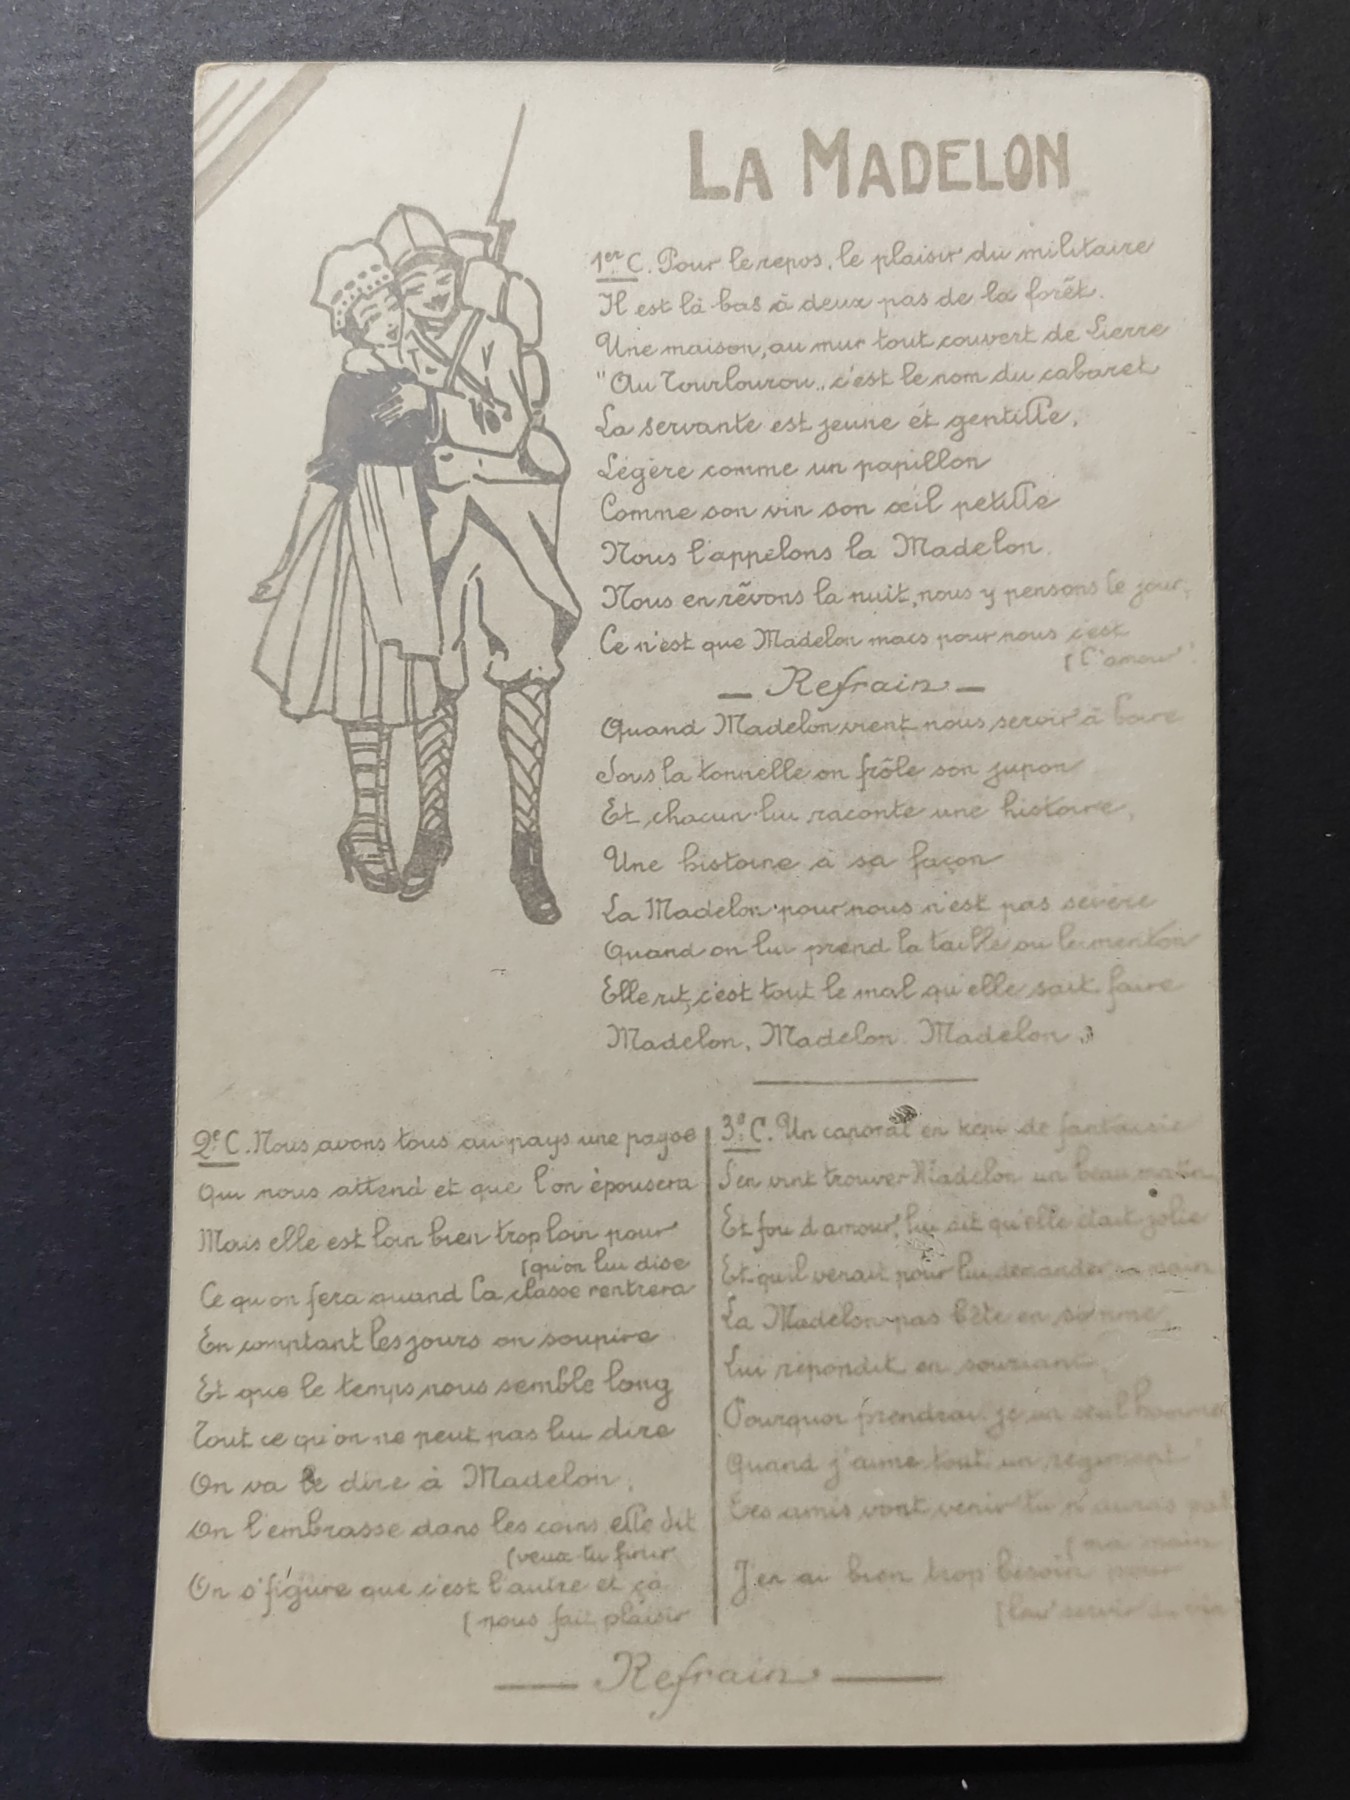 LA MADELON
1er C. Pour le repos, le plaisir du militaire
Il est là bas à deux pas de la forêt.
Une maison, au mur tout couvert de Lierre
"Au Tourlourou,, c'est le nom du cabaret
La servante est jeune et gentille,
Légère comme un papillon
Comme son vin son œil petille
Nous l'appelons la Madelon.
Nous en rêvons la nuit, nous y pensons le jour,
Ce n'est que Madelon mais pour nous c'est
(l'amour.
— Refrain —
Quand Madelon vient nous servir à boire
Sous la tonnelle on frôle son jupon
Et chacun lui raconte une histoire,
Une histoire à sa façon
La Madelon pour nous n'est pas sévère
Quand on lui prend la taille ou le menton
Elle rit, c'est tout le mal qu'elle sait faire
Madelon, Madelon. Madelon
2e C. Nous avons tous au pays une payse
Qui nous attend et que l'on épousera
Mais elle est loin bien trop loin pour
(qu'on lui dise
Ce qu'on fera quand la classe rentrera
En comptant les jours on soupire
Et que le temps nous semble long
Tout ce qu'on ne peut pas lui dire
On va le dire à Madelon,
On l'embrasse dans les coins elle dit
(veux-tu finir
On s'figure que c'est l'autre et ça
(nous fait plaisir
3e C. Un caporal en képi de fantaisie
S'en vint trouver Madelon un beau matin
Et fou d'amour, lui dit qu'elle était jolie
Et qu'il venait pour lui demander sa main
La Madelon pas bête en somme
Lui répondit en souriant
Pourquoi prendrai je un seul homme
Quand j'aime tout un régiment
Tes amis vont venir tu n'auras pas
(ma main
J'en ai bien trop besoin pour
(leur servir du vin
— Refrain —